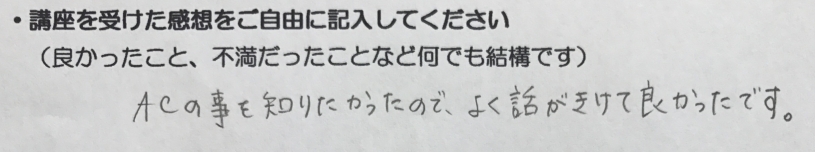 ・講座を受けた感想をご自由に記入してください
（良かったこと、不満だったことなど何でも結構です）
ACの事を知りたかったので、よく話がきけて良かったです。